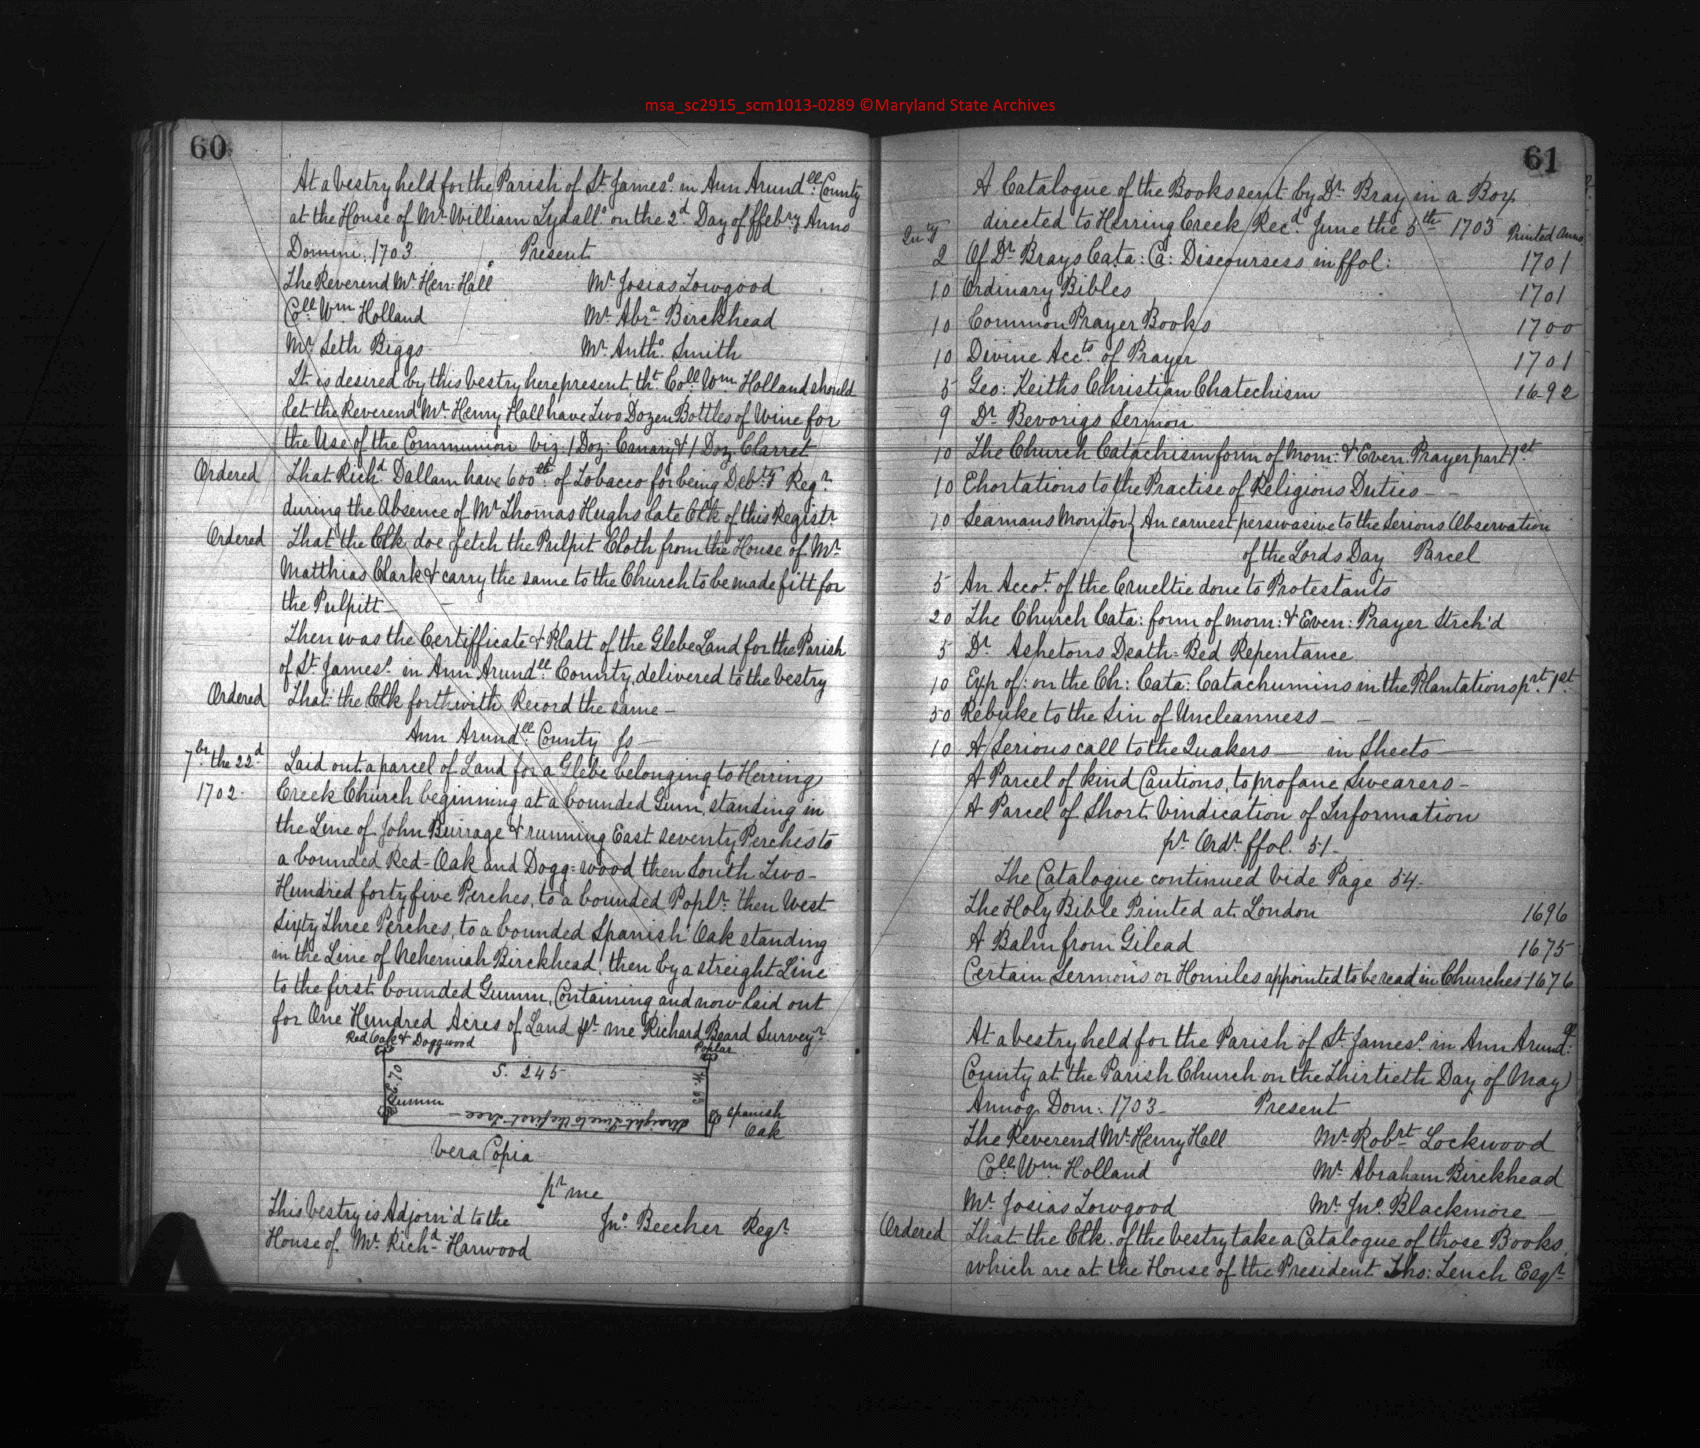 msa_sc2915_scm1013-0289 ©Maryland State Archives
60
At a Vestry held for the Parish of St. James's in Ann Arundll. County
at the House of Mr. William Lydall's on the 2d Day of ffebry Anno
Domini. 1703 Present
The Reverend Mr. Hen: Hall Mr. Josias Towgood
Coll Wm Holland Mr. Abra. Birckhead
Mr. Seth Biggs Mr. Antho. Smith
It is desired by this Vestry here present tht. Coll. Wm Holland should
let the Reverend Mr. Henry Hall have Two Dozen Bottles of Wine for
the Use of the Communion Viz: 1 Doz: Canary & 1 Doz. Clarret
Ordered That Richd. Dallam have 600 of Tobacco for being Debty Regr.
during the Absence of Mr Thomas Hughs late Clk of this Registr
Ordered That the Clk doe fetch the Pulpit Cloth from the House of Mr.
Matthias Clark & carry the same to the Church to be made fitt for
the Pulpitt
Then was the Certifficate & Platt of the Glebe Land for the Parish
of St. James's in Ann Arundll County, delivered to the Vestry
Ordered That the Clk forthwith Record the same —
Ann Arundll. County Ss —
7br. the 22d Laid out a parcel of Land for a Glebe belonging to Herring
1702 Creek Church beginning at a bounded Gum, standing in
the Line of John Burrage & running East seventy Perches to
a bounded Red-Oak and Dogg-wood then South Two-
Hundred forty five Perches, to a bounded Poplr. then West
Sixty Three Perches, to a bounded Spanish Oak standing
in the Line of Nehemiah Birckhead, then by a streight Line
to the first bounded Gumm, Containing and now laid out
for One Hundred Acres of Land pr. me Richard Beard Surveyr.
Red Oak & Doggwood Poplar
S. 245
E. 70
W. 63
Gumm
straight Line to the first Tree —
Spanish
Oak
Vera Copia
pr me
This Vestry is Adjorn'd to the Jno. Beecher Regr.
House of Mr. Richd Harwood
61
A Catalogue of the Books sent by Dr. Bray in a Box
directed to Herring Creek, Recd. June the 5th 1703 Printed Anno
Quty
2 Of Dr. Brays Cata: Ca: Discoursess in ffol: 1701
10 Ordinary Bibles 1701
10 Common Prayer Books 1700
10 Divine Accts. of Prayer 1701
5 Geo: Keiths Christian Chatechism 1692
9 Dr Bevorigs Sermon
10 The Church Catachism form of Morn: & Even. Prayer part 1st
10 Ehortations to the Practise of Religious Duties —
10 Seamans Monitor } An earnest perswasive to the Serious Observation
of the Lords Day Parcel
5 An Accot. of the Crueltie done to Protestants
20 The Church Cata: form of morn: & Even: Prayer Strch'd
5 Dr. Ashetons Death-Bed Repentance
10 Exp of: on the Ch: Cata: Catachumins in the Plantations prt. 1st
50 Rebuke to the Sin of Uncleanness —
10 A Serious call to the Quakers — in Sheets —
A Parcel of kind Cautions, to profane Swearers —
A Parcel of Short Vindication of Information
pr. Ordr. ffol. 51 —
The Catalogue continued Vide Page 54 —
The Holy Bible Printed at London 1696
A Balm from Gilead 1675
Certain Sermons or Homiles appointed to be read in Churches 1676
At a Vestry held for the Parish of St. James's in Ann Arundll.
County at the Parish Church on the Thirtieth Day of May
Annoq. Dom: 1703 — Present
The Reverend Mr. Henry Hall Mr. Robrt Lockwood
Coll Wm Holland Mr. Abraham Birckhead
Mr. Josias Towgood Mr. Jno. Blackmore —
Ordered That the Clk. of the Vestry take a Catalogue of those Books,
which are at the House of the President Tho: Tench Esqr.